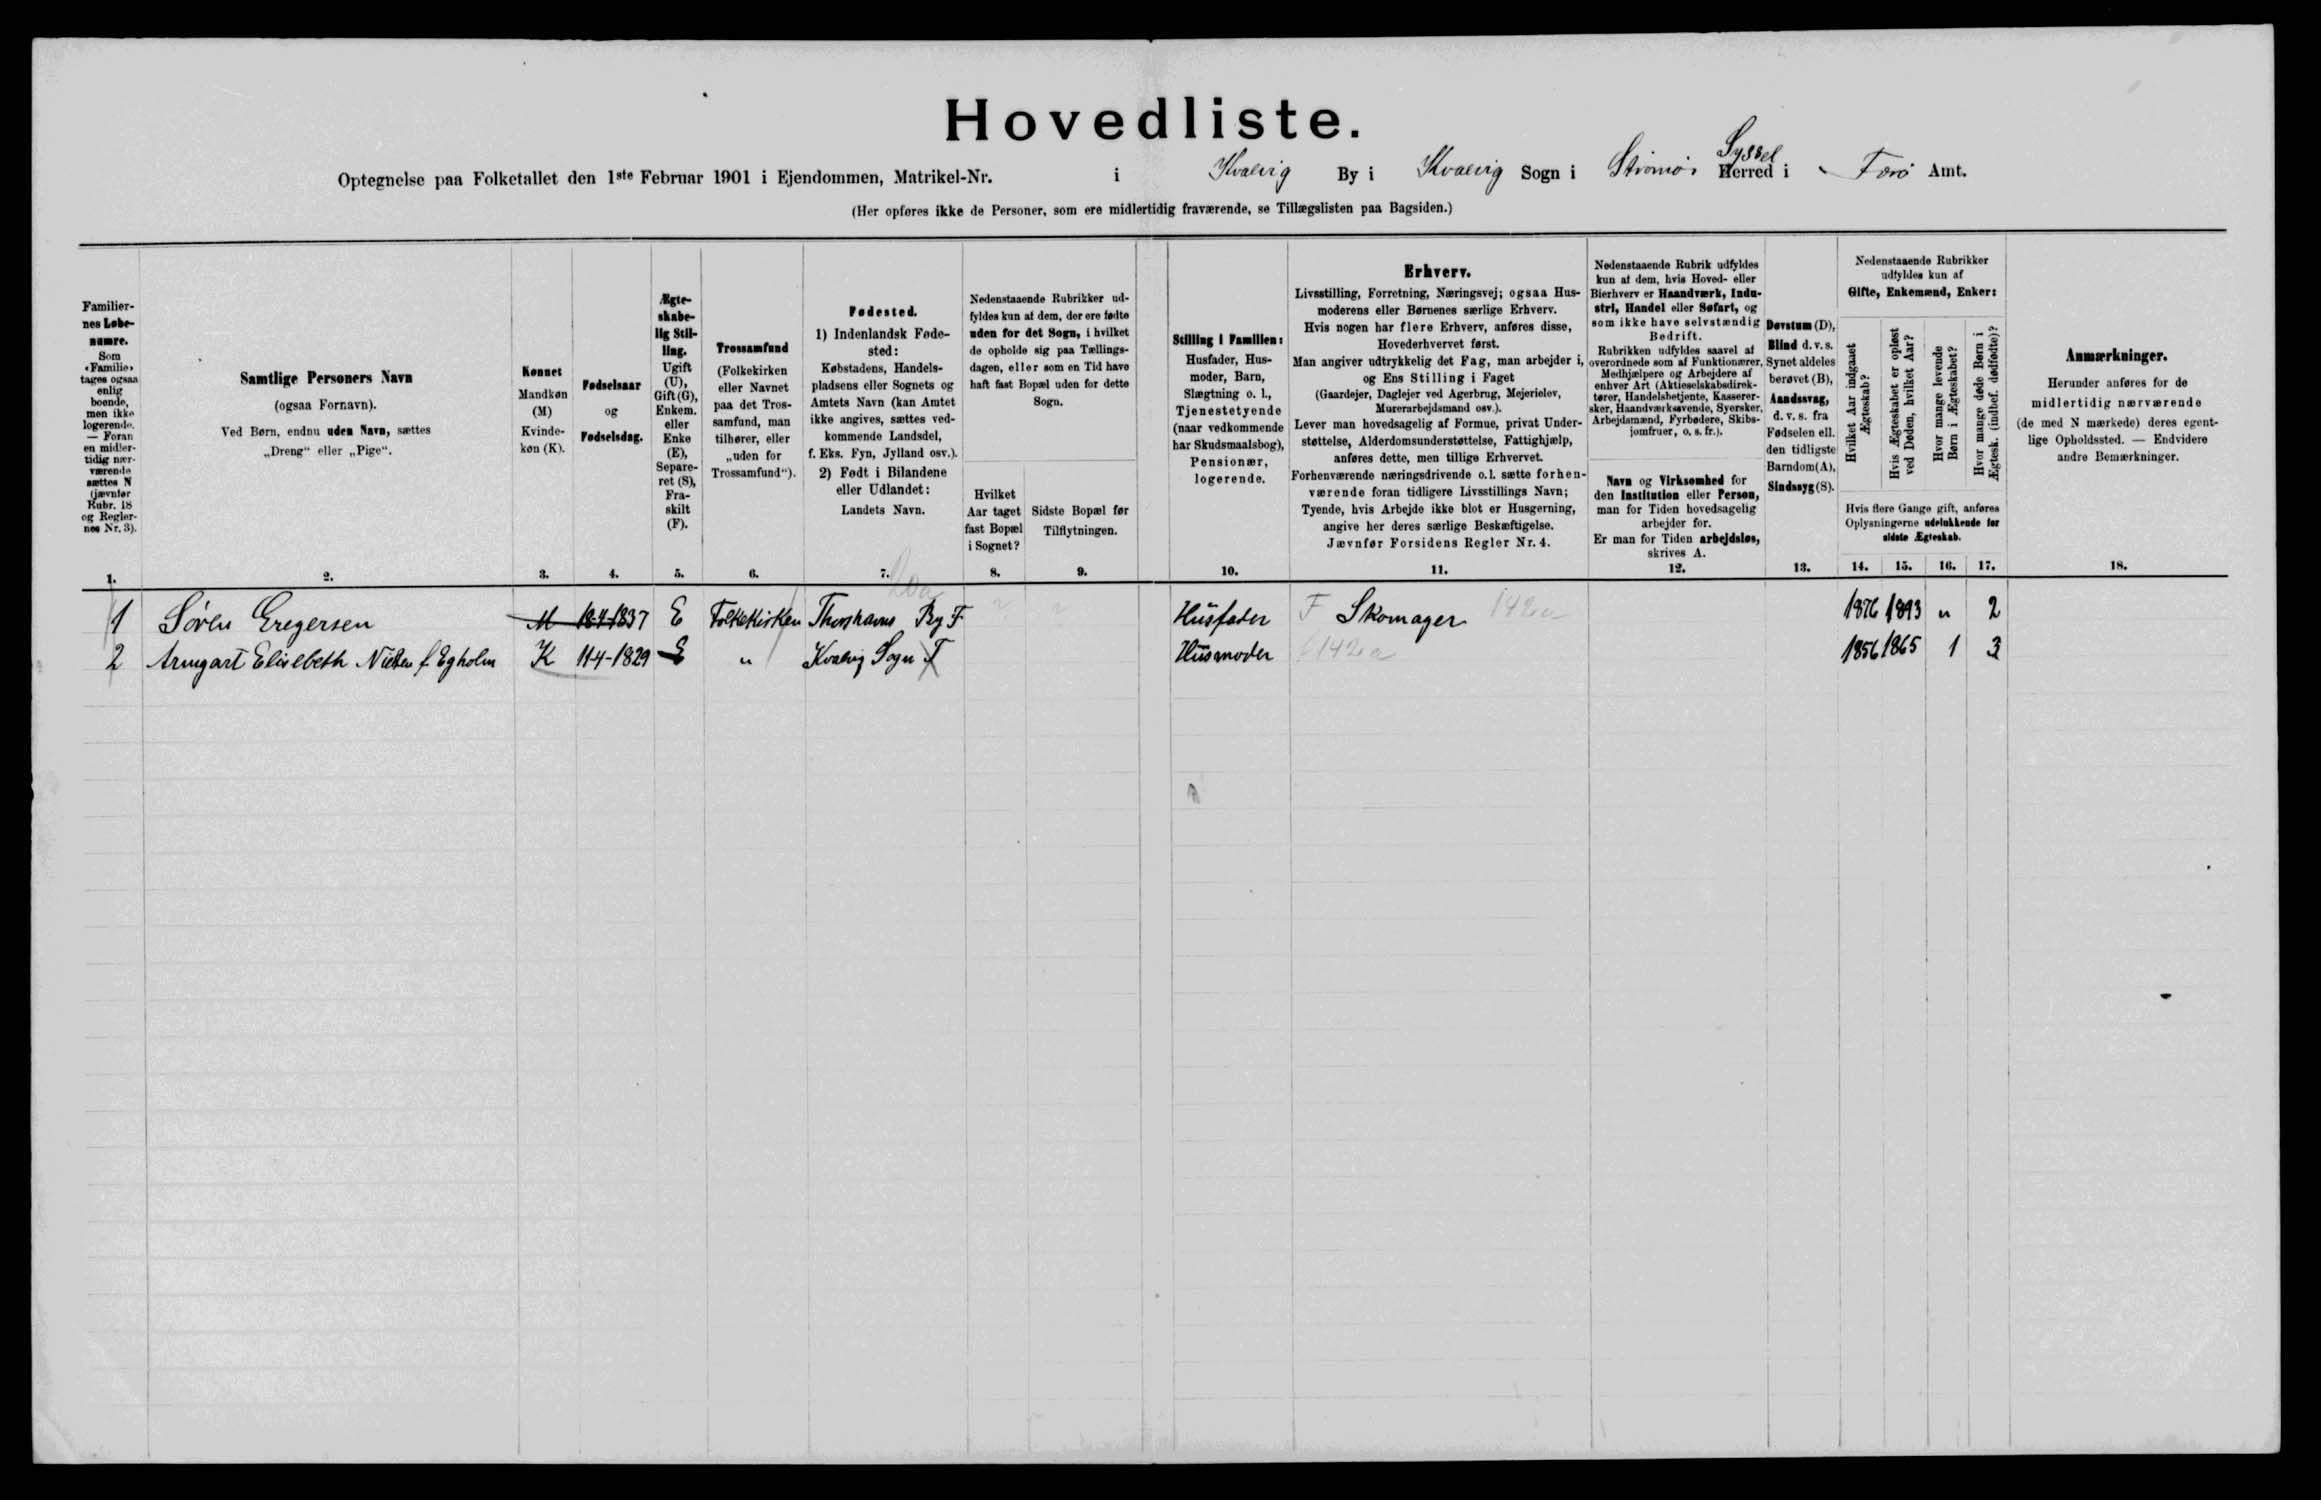 Hovedliste.
Optegnelse paa Folketallet den 1ste Februar 1901 i Ejendommen, Matrikel-Nr. i Kvalvig By i Kvalvig Sogn i Strömös Syssel Herred i Færö Amt.
(Her opføres ikke de Personer, som ere midlertidig fraværende, se Tillægslisten paa Bagsiden.)
Familier-
nes Løbe-
numre.
Som
«Familie»
tages ogsaa
enlig
boende,
men ikke
logerende.
— Foran
en midler-
tidig nær-
værende
sættes N
(jævnfør
Rubr. 18
og Regler-
nes Nr. 3).
1.
Samtlige Personers Navn
(ogsaa Fornavn).
Ved Børn, endnu uden Navn, sættes
„Dreng“ eller „Pige“.
2.
Kønnet
Mandkøn
(M)
Kvinde-
køn (K).
3.
Fødselsaar
og
Fødselsdag.
4.
Ægte-
skabe-
lig Stil-
ling.
Ugift
(U),
Gift (G),
Enkem.
eller
Enke
(E),
Separe-
ret (S),
Fra-
skilt
(F).
5.
Trossamfund
(Folkekirken
eller Navnet
paa det Tros-
samfund, man
tilhører, eller
„uden for
Trossamfund“).
6.
Fødested.
1) Indenlandsk Føde-
sted:
Købstadens, Handels-
pladsens eller Sognets og
Amtets Navn (kan Amtet
ikke angives, sættes ved-
kommende Landsdel,
f. Eks. Fyn, Jylland osv.).
2) Født i Bilandene
eller Udlandet:
Landets Navn.
7.
Nedenstaaende Rubrikker ud-
fyldes kun af dem, der ere fødte
uden for det Sogn, i hvilket
de opholde sig paa Tællings-
dagen, eller som en Tid have
haft fast Bopæl uden for dette
Sogn.
Hvilket
Aar taget
fast Bopæl
i Sognet?
8.
Sidste Bopæl før
Tilflytningen.
9.
Stilling i Familien:
Husfader, Hus-
moder, Barn,
Slægtning o. l.,
Tjenestetyende
(naar vedkommende
har Skudsmaalsbog),
Pensionær,
logerende.
10.
Erhverv.
Livsstilling, Forretning, Næringsvej; ogsaa Hus-
moderens eller Børnenes særlige Erhverv.
Hvis nogen har flere Erhverv, anføres disse,
Hovederhvervet først.
Man angiver udtrykkelig det Fag, man arbejder i,
og Ens Stilling i Faget
(Gaardejer, Daglejer ved Agerbrug, Mejerielev,
Murerarbejdsmand osv.).
Lever man hovedsagelig af Formue, privat Under-
støttelse, Alderdomsunderstøttelse, Fattighjælp,
anføres dette, men tillige Erhvervet.
Forhenværende næringsdrivende o. l. sætte forhen-
værende foran tidligere Livsstillings Navn;
Tyende, hvis Arbejde ikke blot er Husgerning,
angive her deres særlige Beskæftigelse.
Jævnfør Forsidens Regler Nr. 4.
11.
Nedenstaaende Rubrik udfyldes
kun af dem, hvis Hoved- eller
Bierhverv er Haandværk, Indu-
stri, Handel eller Søfart, og
som ikke have selvstændig
Bedrift.
Rubrikken udfyldes saavel af
overordnede som af Funktionærer,
Medhjælpere og Arbejdere af
enhver Art (Aktieselskabsdirek-
tører, Handelsbetjente, Kasserer-
sker, Haandværkssvende, Syersker,
Arbejdsmænd, Fyrbødere, Skibs-
jomfruer, o. s. fr.).
Navn og Virksomhed for
den Institution eller Person,
man for Tiden hovedsagelig
arbejder for.
Er man for Tiden arbejdsløs,
skrives A.
12.
Døvstum (D),
Blind d. v. s.
Synet aldeles
berøvet (B),
Aandssvag,
d. v. s. fra
Fødselen ell.
den tidligste
Barndom (A),
Sindssyg (S).
13.
Nedenstaaende Rubrikker
udfyldes kun af
Gifte, Enkemænd, Enker:
Hvilket Aar indgaaet
Ægteskab?
Hvis Ægteskabet er opløst
ved Døden, hvilket Aar?
Hvor mange levende
Børn i Ægteskabet?
Hvor mange døde Børn i
Ægtesk. (indbef. dødfødte)?
Hvis flere Gange gift, anføres
Oplysningerne udelukkende for
sidste Ægteskab.
14. 15. 16. 17.
Anmærkninger.
Herunder anføres for de
midlertidig nærværende
(de med N mærkede) deres egent-
lige Opholdssted. — Endvidere
andre Bemærkninger.
18.
1 Sören Gregersen M 18-4-1837 E Folkekirken Thorshavns By F Husfader F Skomager 142a 1876 1893 " 2
2 Armgart Elisebeth Nielsen f. Egholm K 11-4-1829 E " Kvalvig Sogn F Husmoder 142a 1856 1865 1 3